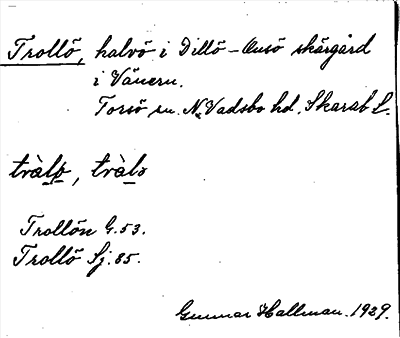 Trollö, halvö i Dillö-Onsö skärgård
i Vänern.
Torsö sn. N. Vadsbo hd. Skarab. L.
tràlo, tràlo
Trollön G. 53.
Trollö Sj. 85.
Gunnar Hallman. 1929.